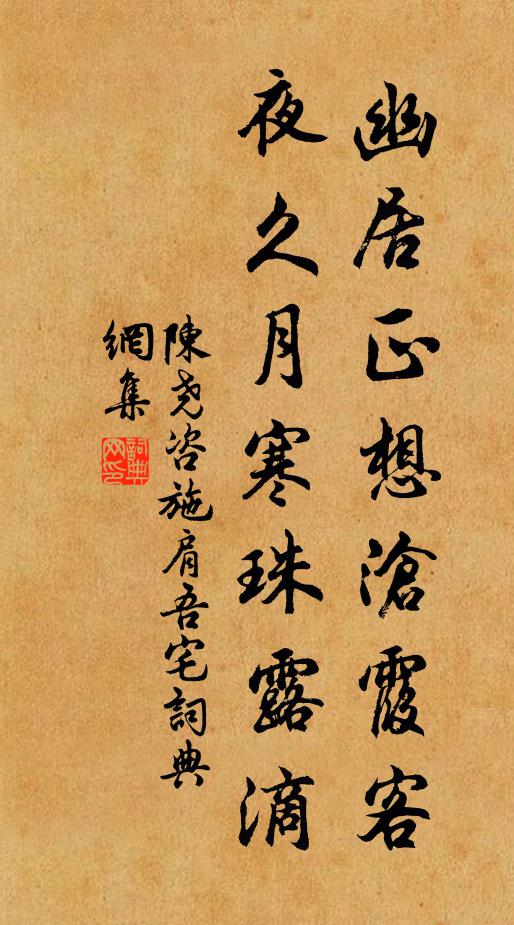 幽居正想滄霞客
夜久月寒珠露滴
陳尧咨施肩吾宅詞典
網集
詞典
网印